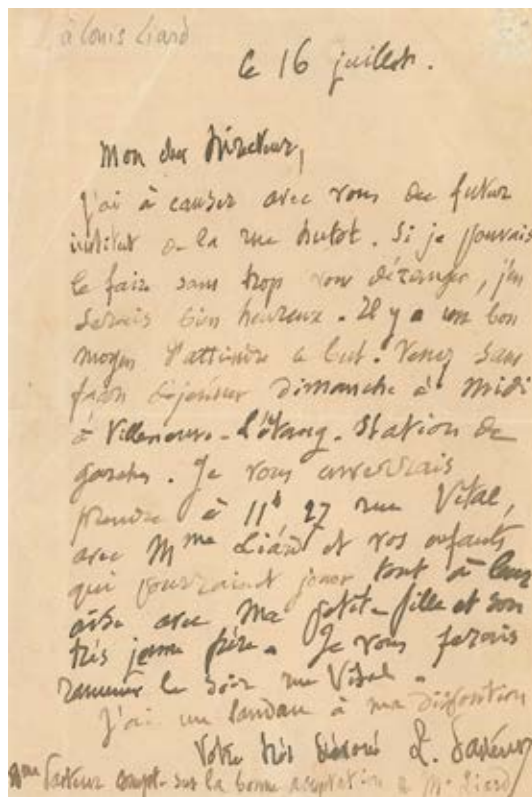 à Louis Liard
le 16 juillet.
Mon cher Directeur,
j'ai à causer avec vous du futur
institut de la rue Dutot. Si je pouvais
le faire sans trop vous déranger, j'en
serais bien heureux. Il y a un bon
moyen d'atteindre ce but. Venez sans
façon déjeuner dimanche à midi
à Villeneuve-L'étang. Station de
garches. Je vous enverrais
prendre à 11h 27 rue Vital,
avec Mme Liard et vos enfants
qui pourraient jouer tout à leur
aise avec ma petite fille et son
très jeune frère. Je vous ferais
ramener le soir rue Vital.
J'ai un landau à ma disposition
Votre très dévoué L. Pasteur
Mme Pasteur compte sur la bonne acceptation de Me Liard